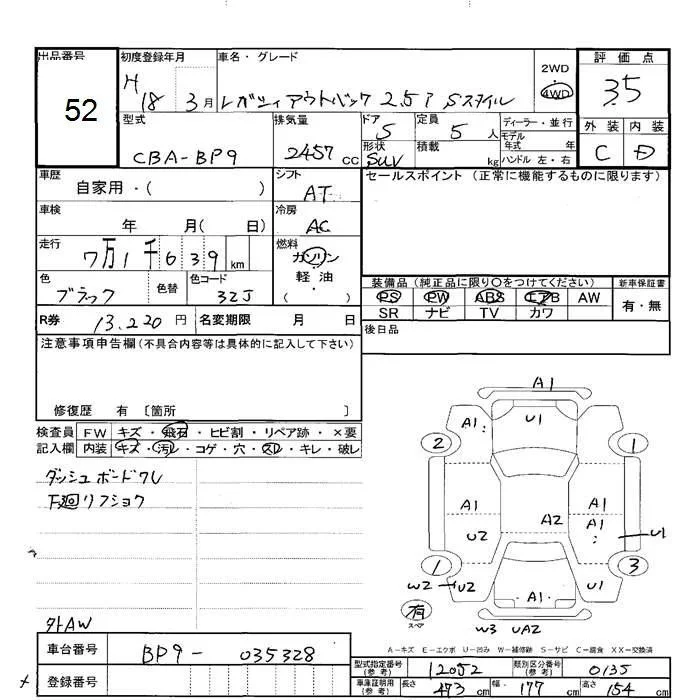 出品番号 52
初度登録年月 H18 3月
車名・グレード レガシィアウトバック 2.5i Sスタイル
2WD 4WD
評価点 3.5
型式 CBA-BP9
排気量 2457 cc
ドア 5
形状 SUV
定員 5 人
積載 kg
ディーラー・並行
モデル年式 年
ハンドル 左・右
外装 内装
C D
車歴 自家用・( )
シフト AT
セールスポイント(正常に機能するものに限ります)
車検 年 月( 日)
冷房 AC
走行 7万1千639 km
燃料 ガソリン・軽油・( )
色 ブラック 色替
色コード 32J
装備品(純正品に限り○をつけてください)
新車保証書 有・無
PS PW ABS エアB AW
SR ナビ TV カワ
R券 13,220 円
名変期限 月 日
後日品
注意事項申告欄(不具合内容等は具体的に記入して下さい)
修復歴 有 〔箇所 〕
検査員記入欄
FW キズ・飛石・ヒビ割・リペア跡・×要
内装 キズ・汚レ・コゲ・穴・スレ・キレ・破レ
ダッシュボードワレ
下廻リフショク
外AW
A1
A1 U1
2 1
A1 A1
A1
U2 A2 U1
1 3
W2 U2 A1 U1
有 スペア
W3 UA2
A-キズ E-エクボ U-凹み W-補修跡 S-サビ C-腐食 XX-交換済
車台番号 BP9-035328
登録番号
型式指定番号(参考) 12052
類別区分番号(参考) 0135
車庫証明用(参考) 長さ 473 cm 幅 177 cm 高さ 154 cm